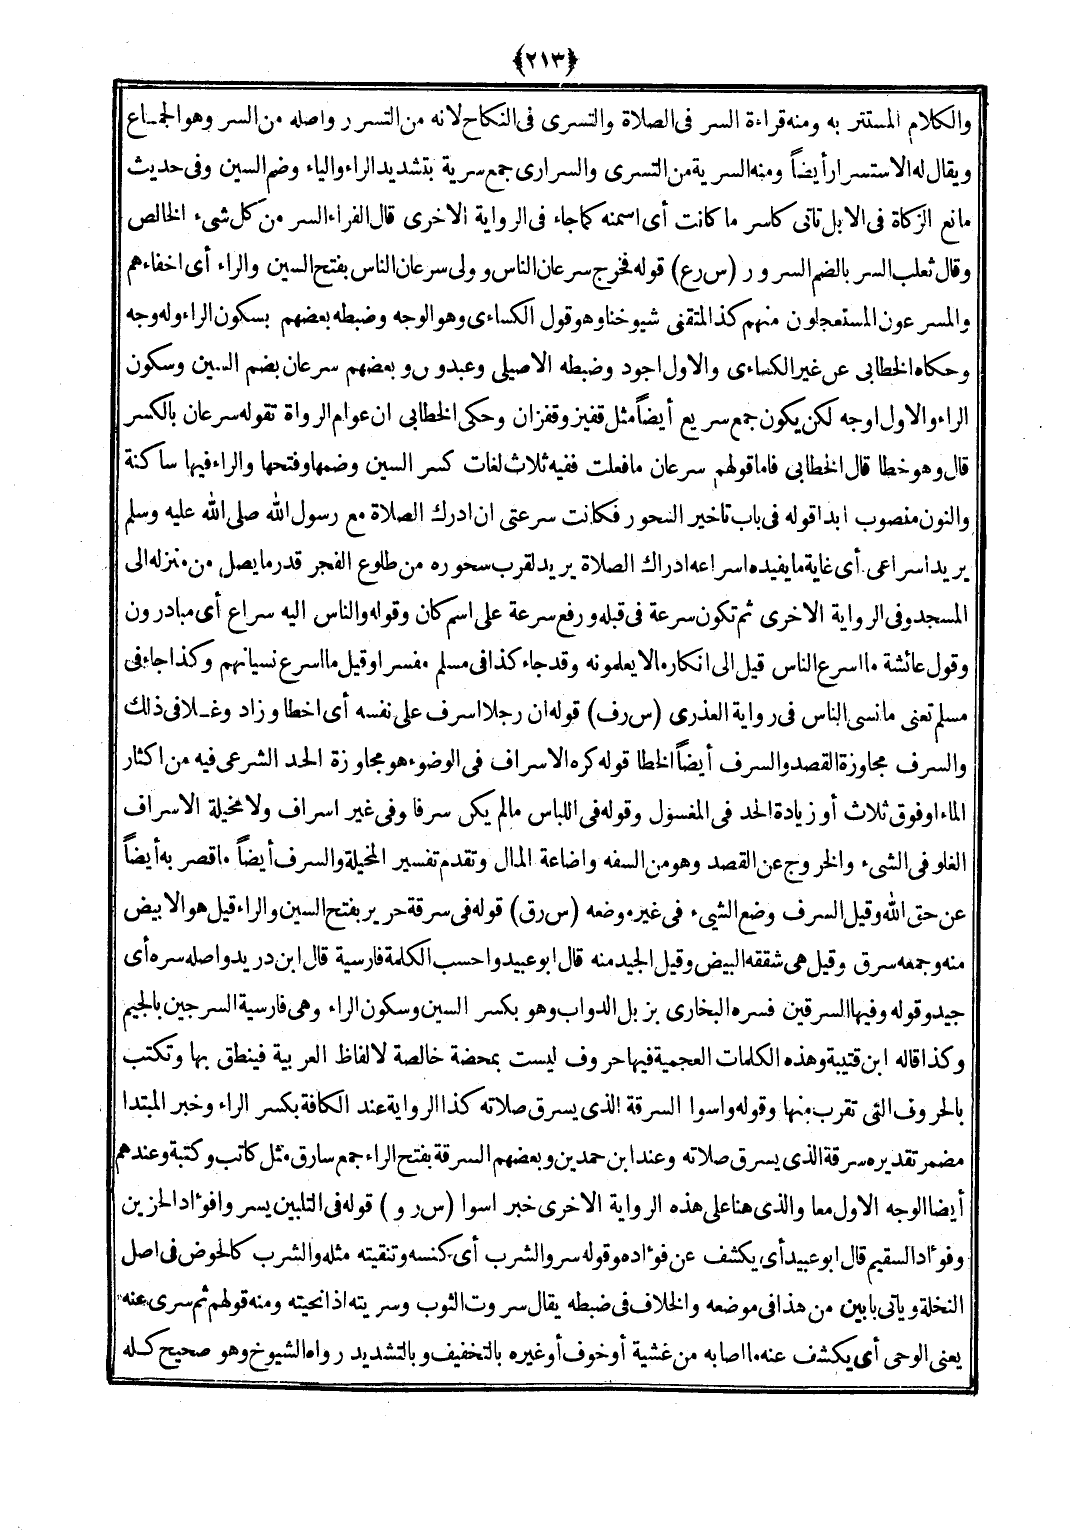 ﴿٢١٣﴾
والكلام المستتر به ومنه قراءة السر فى الصلاة والتسرى فى النكاح لانه من التسرر واصله من السر وهو الجمـاع
ويقال له الاستسرار أيضاً ومنه السرية من التسرى والسرارى جمع سرية بتشديد الراء والياء وضم السين وفى حديث
مانع الزكاة فى الابل تاتى كاسر ما كانت أى اسمنه كما جاء فى الرواية الاخرى قال الفراء السر من كل شىء الخالص
وقال ثعلب السر بالضم السرور (س رع) قوله فخرج سرعان الناس وولى سرعان الناس بفتح السين والراء أى اخفاءهم
والمسرعون المستعجلون منهم كذا لمتقنى شيوخنا وهو قول الكساءى وهو الوجه وضبطه بعضهم بسكون الراء وله وجه
وحكاه الخطابى عن غير الكساءى والاول اجود وضبطه الاصيلى وعبدوس وبعضهم سرعان بضم السين وسكون
الراء والاول اوجه لكن يكون جمع سريع أيضاً مثل قفيز وقفزان وحكى الخطابى ان عوام الرواة تقوله سرعان بالكسر
قال وهو خطا قال الخطابى فاما قولهم سرعان ما فعلت ففيه ثلاث لغات كسر السين وضمها وفتحها والراء فيها ساكنة
والنون منصوب ابدا قوله فى باب تاخير السحور فكانت سرعتى ان ادرك الصلاة مع رسول الله صلى الله عليه وسلم
يريد اسراعى أى غاية ما يفيده اسراعه ادراك الصلاة يريد لقرب سحوره من طلوع الفجر قدر ما يصل من منزله الى
المسجد وفى الرواية الاخرى ثم تكون سرعة فى قبله ورفع سرعة على اسم كان وقوله والناس اليه سراع أى مبادرون
وقول عائشة ما اسرع الناس قيل الى انكار ما لا يعلمونه وقد جاء كذا فى مسلم مفسرا وقيل ما اسرع نسيانهم وكذا جاء فى
مسلم تعنى ما نسى الناس فى رواية العذرى (س رف) قوله ان رجلا اسرف على نفسه أى اخطا وزاد وغـلا فى ذلك
والسرف مجاوزة القصد والسرف أيضاً الخطا قوله كره الاسراف فى الوضوء هو مجاوزة الحد الشرعى فيه من اكثار
الماء او فوق ثلاث أو زيادة الحد فى المغسول وقوله فى اللباس مالم يكن سرفا وفى غير اسراف ولا مخيلة الاسراف
الغلو فى الشىء والخروج عن القصد وهو من السفه واضاعة المال وتقدم تفسير المخيلة والسرف أيضاً ما قصر به أيضاً
عن حق الله وقيل السرف وضع الشيء فى غير موضعه (س رق) قوله فى سرقة حرير بفتح السين والراء قيل هو الابيض
منه وجمعه سرق وقيل هى شققه البيض وقيل الجيد منه قال ابو عبيد واحسب الكلمة فارسية قال ابن دريد واصله سره أى
جيد وقوله وفيها السرقين فسره البخارى بزبل الدواب وهو بكسر السين وسكون الراء وهى فارسية السرجين بالجيم
وكذا قاله ابن قتيبة وهذه الكلمات العجمية فيها حروف ليست بمحضة خالصة لالفاظ العربية فينطق بها وتكتب
بالحروف التى تقرب منها وقوله واسوا السرقة الذى يسرق صلاته كذا الرواية عند الكافة بكسر الراء وخبر المبتدا
مضمر تقديره سرقة الذى يسرق صلاته وعند ابن حمدين وبعضهم السرقة بفتح الراء جمع سارق مثل كاتب وكتبة وعندهم
أيضا الوجه الاول معا والذى هنا على هذه الرواية الاخرى خبر اسوا (س ر و) قوله فى التلبين يسروا فوءاد الحزين
وفوءاد السقيم قال ابو عبيد أى يكشف عن فوءاده وقوله سرو الشرب أى كنسه وتنقيته مثله والشرب كالحوض فى اصل
النخلة وياتى بابين من هذا فى موضعه والخلاف فى ضبطه يقال سروت الثوب وسريته اذا نحيته ومنه قولهم ثم سرى عنه
يعنى الوحى أى يكشف عنه ما اصابه من غشية أو خوف أو غيره بالتخفيف وبالتشديد رواه الشيوخ وهو صحيح كـله